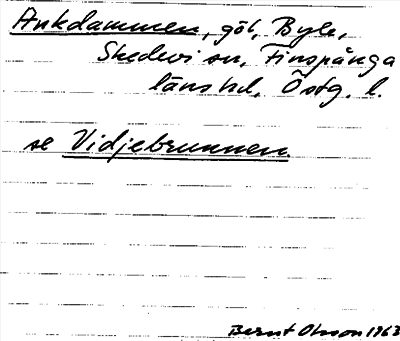 Ankdammen, göl, Byle,
Skedevi sn, Finspånga
länshd, Östg. l.
se Vidjebrunnen
Bernt Olsson 1963